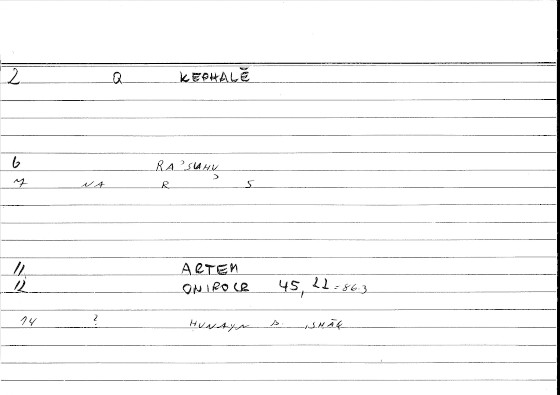 2 Q KEPHALĒ
6 RAʾSUHU
7 NA R ʾ S
11 ARTEM
12 ONIROCR 45, 22 = 863
14 ? HUNAYN B. ISHĀK